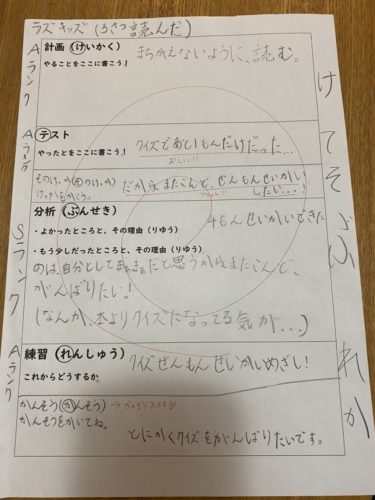 ラズキッズ(3さつ読んだ)
Aランク
計画(けいかく)
やることをここに書こう!
まちがえないように、読む。
け
Aランク
テスト
やったとをここに書こう!
クイズであと1もんだけだった...
おしい!!
て
そのけっか(そのけっか)
けっかをかこう。
だからまたこんど、ぜんもんせいかい
したい...!
そ
Sランク
分析(ぶんせき)
4もんせいかいできた
・よかったところと、その理由(りゆう)
・もう少しだったところと、その理由(りゆう)
のは、自分としてまあまあだと思うからまたこんど、
がんばりたい!
(なんか、本よりクイズになってる気が...)
ぶ
Aランク
練習(れんしゅう)
これからどうするか。
クイズぜんもんせいかいめざし!
れ
かんそう(かんそう)
かんそうをかいてね。
とにかくクイズをがんばりたいです。
か